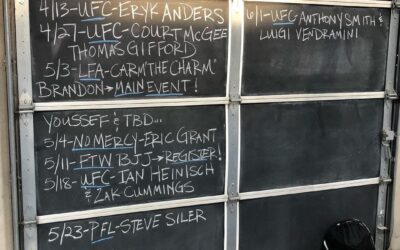 4/13-UFC-ERYK ANDERS
4/27-UFC-COURT MCGEE
THOMAS GIFFORD
5/3-LFA-CARM "THE CHARM"
BRANDON→MAIN EVENT!
YOUSSEF & TBD...
5/4-NO MERCY-ERIC GRANT
5/11-FTW BJJ→REGISTER!
5/18-UFC-IAN HEINISCH
& ZAK CUMMINGS
5/23-PFL-STEVE SILER
6/1-UFC-ANTHONY SMITH &
LUIGI VENDRAMINI